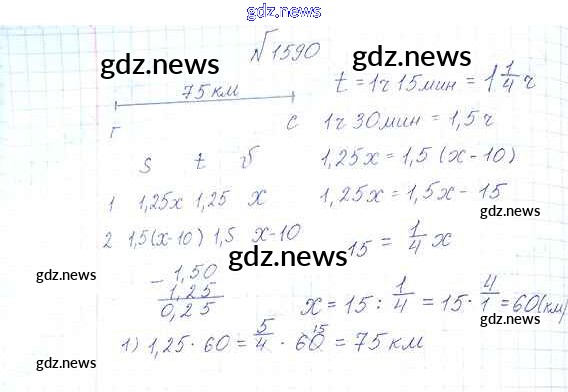 gdz.news
№1590
gdz.news
gdz.news
75 км
t = 1ч 15мин = 1 1/4 ч
Г С
1ч 30мин = 1,5 ч
S t v
1,25x = 1,5 (x - 10)
1 1,25x 1,25 x
1,25x = 1,5x - 15
gdz.news
2 1,5(x-10) 1,5 x-10
15 = 1/4 x
gdz.news
gdz.news
- 1,50
1,25
0,25
x = 15 : 1/4 = 15 · 4/1 = 60(км)
gdz.news
1) 1,25 · 60 = 5/4 · 60 15 = 75 км
gdz.news